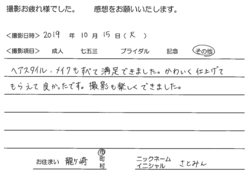 撮影お疲れ様でした。 感想をお願いいたします。
<撮影日時> 2019 年 10 月 15 日 (火)
<撮影項目> 成人 七五三 ブライダル 記念 その他
ヘアスタイル・メイクもすべて満足できました。かわいく仕上げて
もらえて良かったです。撮影も楽しくできました。
お住まい 龍ヶ崎 市 町 村 ニックネーム イニシャル さとみん